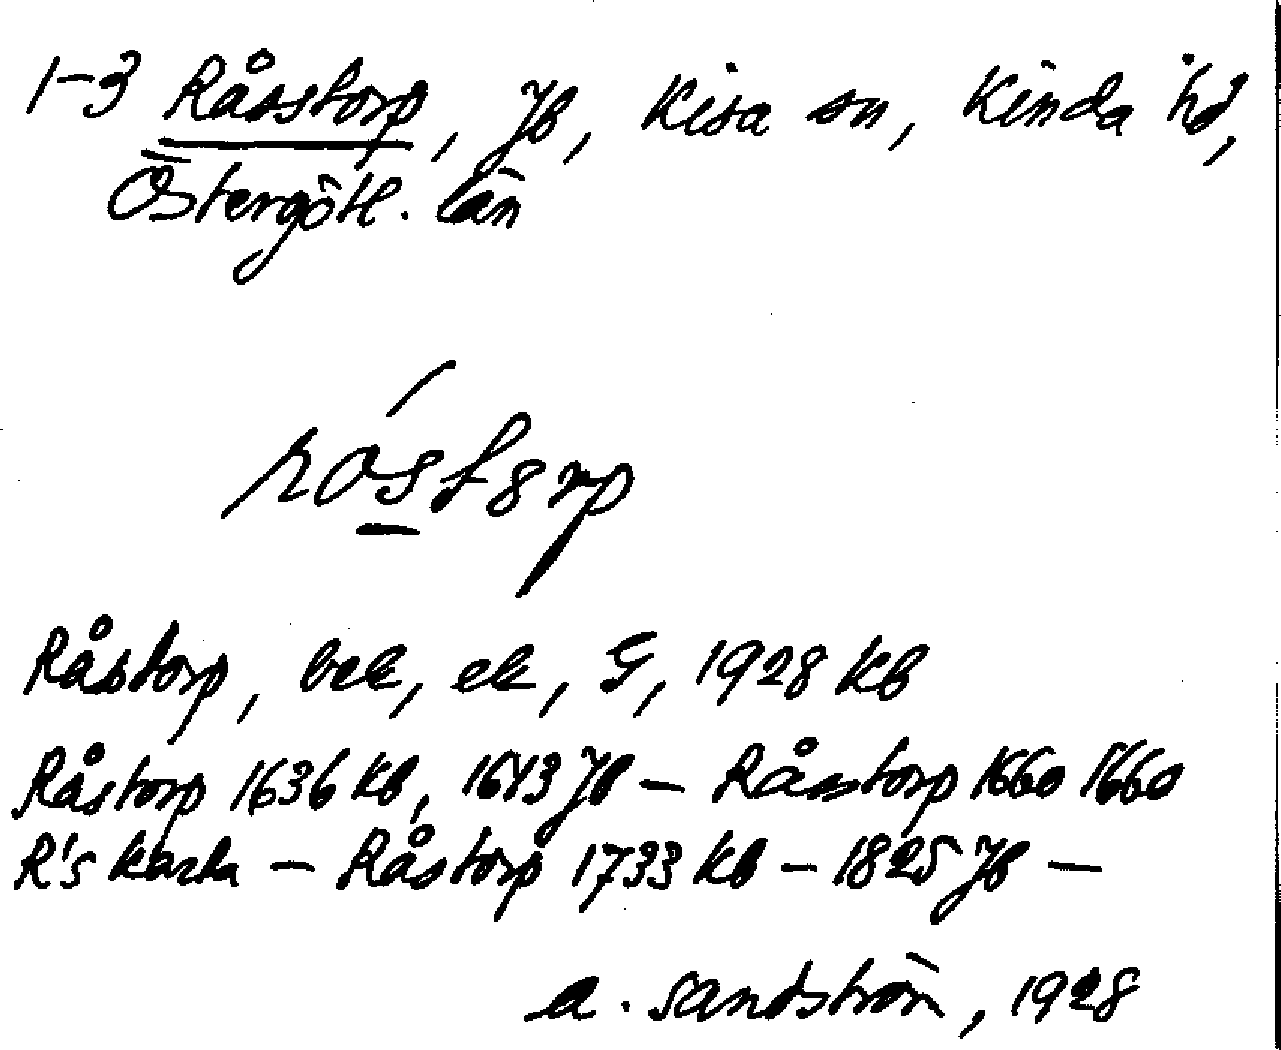 1-3 Råsstorp, Jb, Kisa sn, Kinda hd,
Östergötl. län
róstorp
Råstorp, bek, ek, G, 1928 Kb
Råstorp 1636 Kb, 1643 Jb – Råstorp 1660 1660
R's karta – Råstorp 1733 Kb – 1825 Jb –
A. Sandström, 1928